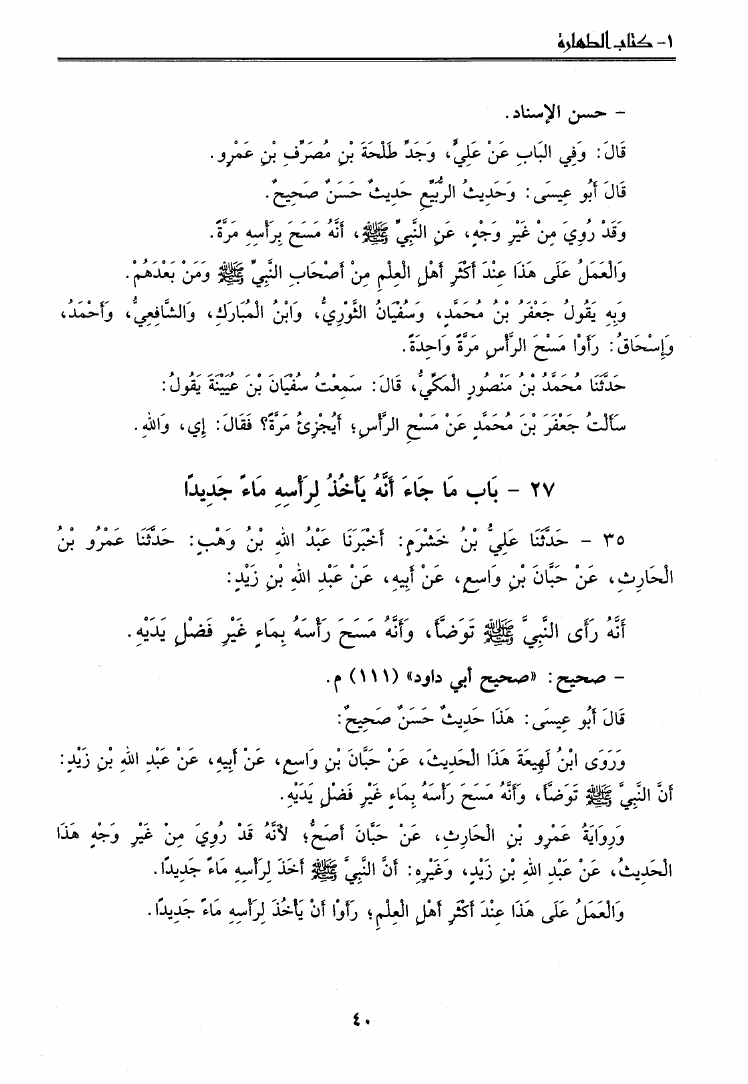 ١- كتاب الطهارة
- حسن الإسناد.
قَالَ: وَفِي البَابِ عَنْ عَلِيٍّ، وَجَدِّ طَلْحَةَ بْنِ مُصَرِّفِ بْنِ عَمْرِو.
قَالَ أَبُو عِيسَى: وَحَدِيثُ الرُّبَيِّعِ حَدِيثٌ حَسَنٌ صَحِيحٌ.
وَقَدْ رُوِيَ مِنْ غَيْرِ وَجْهٍ، عَنِ النَّبِيِّ ﷺ، أَنَّهُ مَسَحَ بِرَأْسِهِ مَرَّةً.
وَالْعَمَلُ عَلَى هَذَا عِنْدَ أَكْثَرِ أَهْلِ العِلْمِ مِنْ أَصْحَابِ النَّبِيِّ ﷺ وَمَنْ بَعْدَهُمْ.
وَبِهِ يَقُولُ جَعْفَرُ بْنُ مُحَمَّدٍ، وَسُفْيَانُ الثَّوْرِيُّ، وَابْنُ الْمُبَارَكِ، وَالشَّافِعِيُّ، وَأَحْمَدُ،
وَإِسْحَاقُ: رَأَوْا مَسْحَ الرَّأْسِ مَرَّةً وَاحِدَةً.
حَدَّثَنَا مُحَمَّدُ بْنُ مَنْصُورٍ الْمَكِّيُّ، قَالَ: سَمِعْتُ سُفْيَانَ بْنَ عُيَيْنَةَ يَقُولُ:
سَأَلْتُ جَعْفَرَ بْنَ مُحَمَّدٍ عَنْ مَسْحِ الرَّأْسِ؛ أَيُجْزِئُ مَرَّةً؟ فَقَالَ: إِي، وَاللهِ.
٢٧ - بَاب مَا جَاءَ أَنَّهُ يَأْخُذُ لِرَأْسِهِ مَاءً جَدِيدًا
٣٥ - حَدَّثَنَا عَلِيُّ بْنُ خَشْرَمٍ: أَخْبَرَنَا عَبْدُ اللهِ بْنُ وَهْبٍ: حَدَّثَنَا عَمْرُو بْنُ
الْحَارِثِ، عَنْ حَبَّانَ بْنِ وَاسِعٍ، عَنْ أَبِيهِ، عَنْ عَبْدِ اللهِ بْنِ زَيْدٍ:
أَنَّهُ رَأَى النَّبِيَّ ﷺ تَوَضَّأَ، وَأَنَّهُ مَسَحَ رَأْسَهُ بِمَاءٍ غَيْرِ فَضْلِ يَدَيْهِ.
- صحيح: «صحيح أبي داود» (١١١) م.
قَالَ أَبُو عِيسَى: هَذَا حَدِيثٌ حَسَنٌ صَحِيحٌ:
وَرَوَى ابْنُ لَهِيعَةَ هَذَا الْحَدِيثَ، عَنْ حَبَّانَ بْنِ وَاسِعٍ، عَنْ أَبِيهِ، عَنْ عَبْدِ اللهِ بْنِ زَيْدٍ:
أَنَّ النَّبِيَّ ﷺ تَوَضَّأَ، وَأَنَّهُ مَسَحَ رَأْسَهُ بِمَاءٍ غَيْرِ فَضْلِ يَدَيْهِ.
وَرِوَايَةُ عَمْرِو بْنِ الْحَارِثِ، عَنْ حَبَّانَ أَصَحُّ؛ لأَنَّهُ قَدْ رُوِيَ مِنْ غَيْرِ وَجْهٍ هَذَا
الْحَدِيثُ، عَنْ عَبْدِ اللهِ بْنِ زَيْدٍ، وَغَيْرِهِ: أَنَّ النَّبِيَّ ﷺ أَخَذَ لِرَأْسِهِ مَاءً جَدِيدًا.
وَالْعَمَلُ عَلَى هَذَا عِنْدَ أَكْثَرِ أَهْلِ العِلْمِ؛ رَأَوْا أَنْ يَأْخُذَ لِرَأْسِهِ مَاءً جَدِيدًا.
٤٠